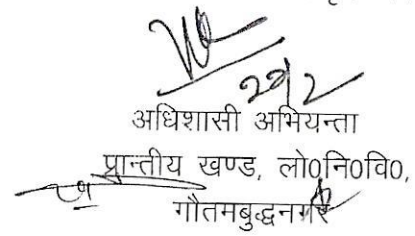 22/2
अधिशासी अभियन्ता
प्रान्तीय खण्ड, लो0नि0वि0,
गौतमबुद्धनगर